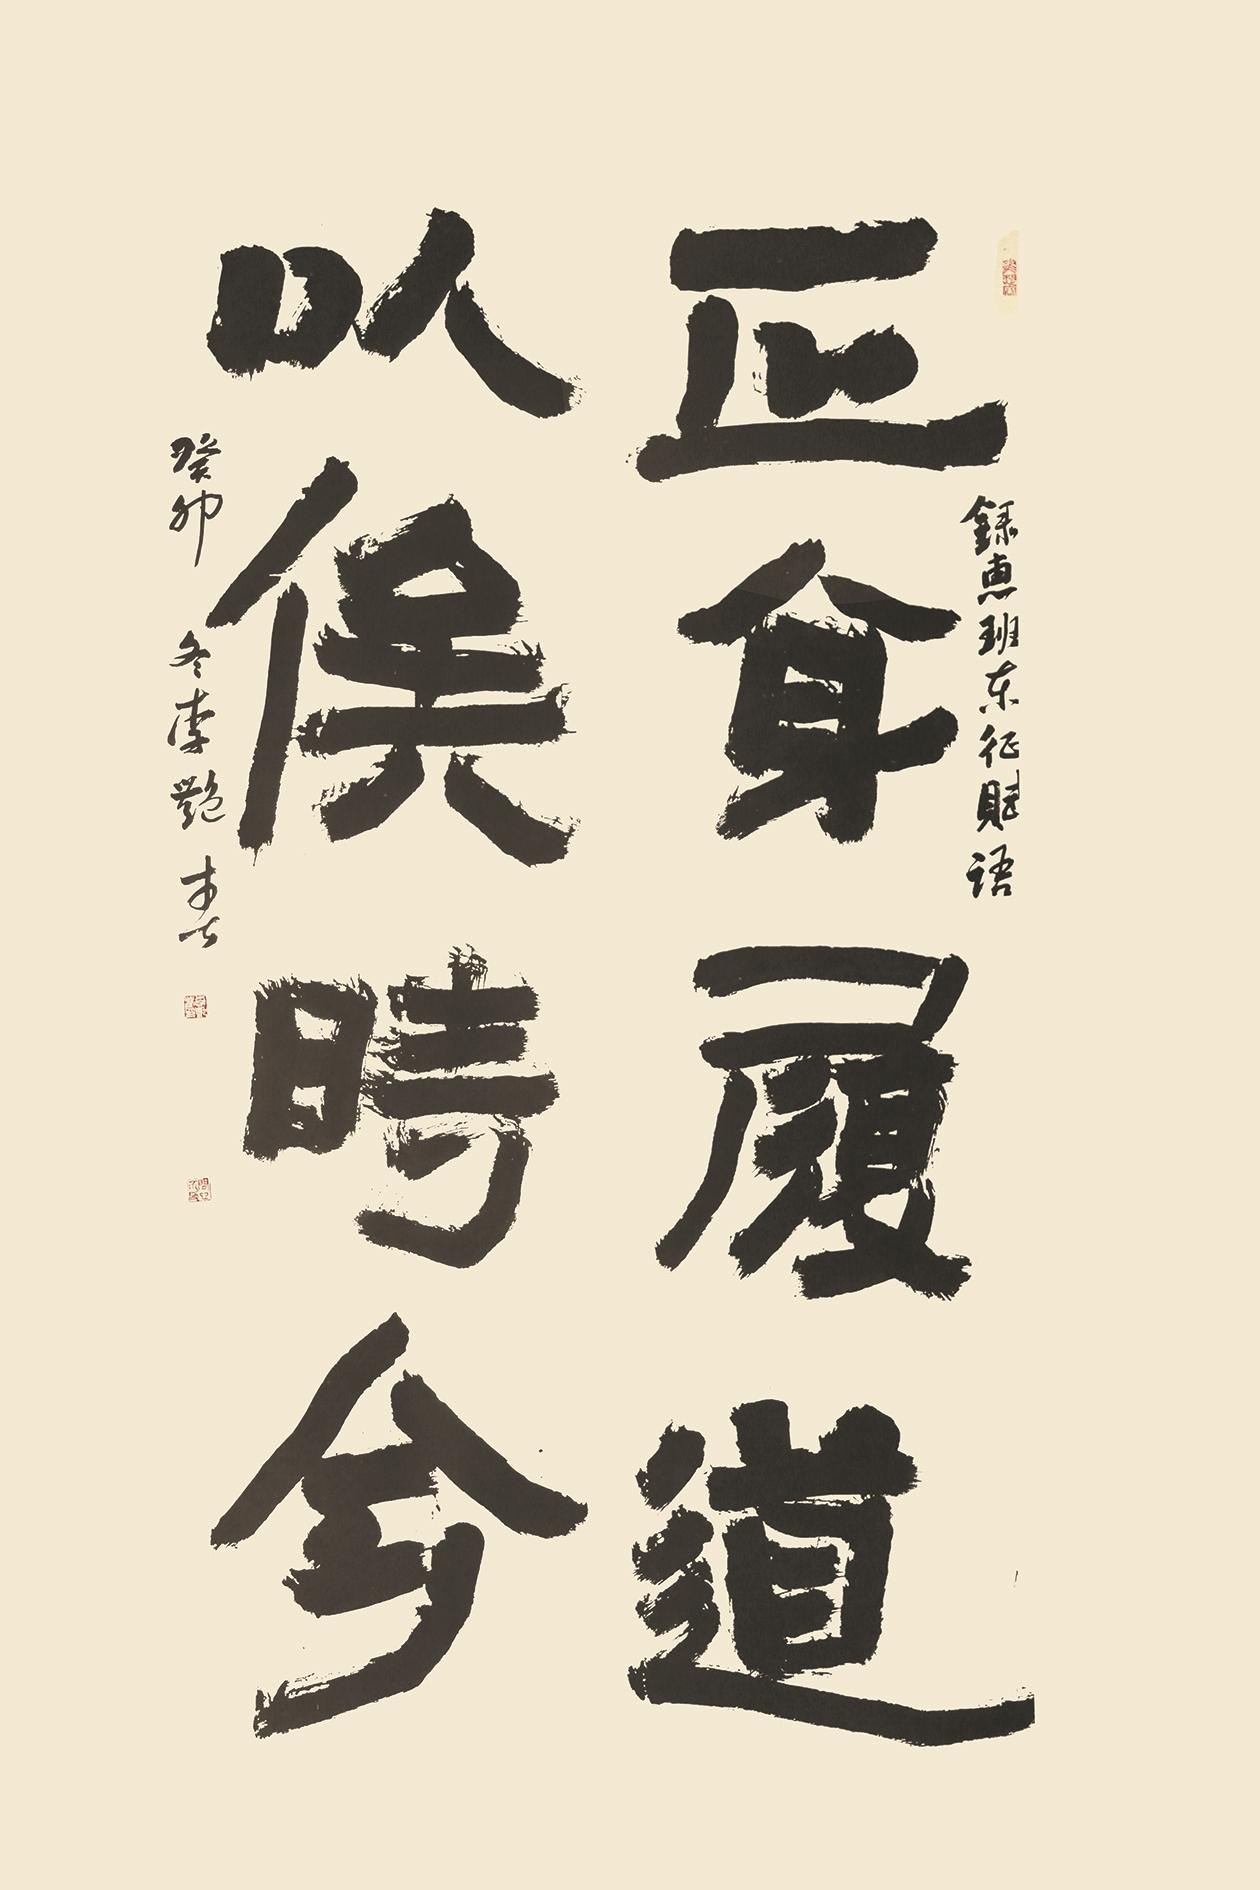 正身履道
以俟時兮
錄惠班东征賦语
癸卯
冬李艷春